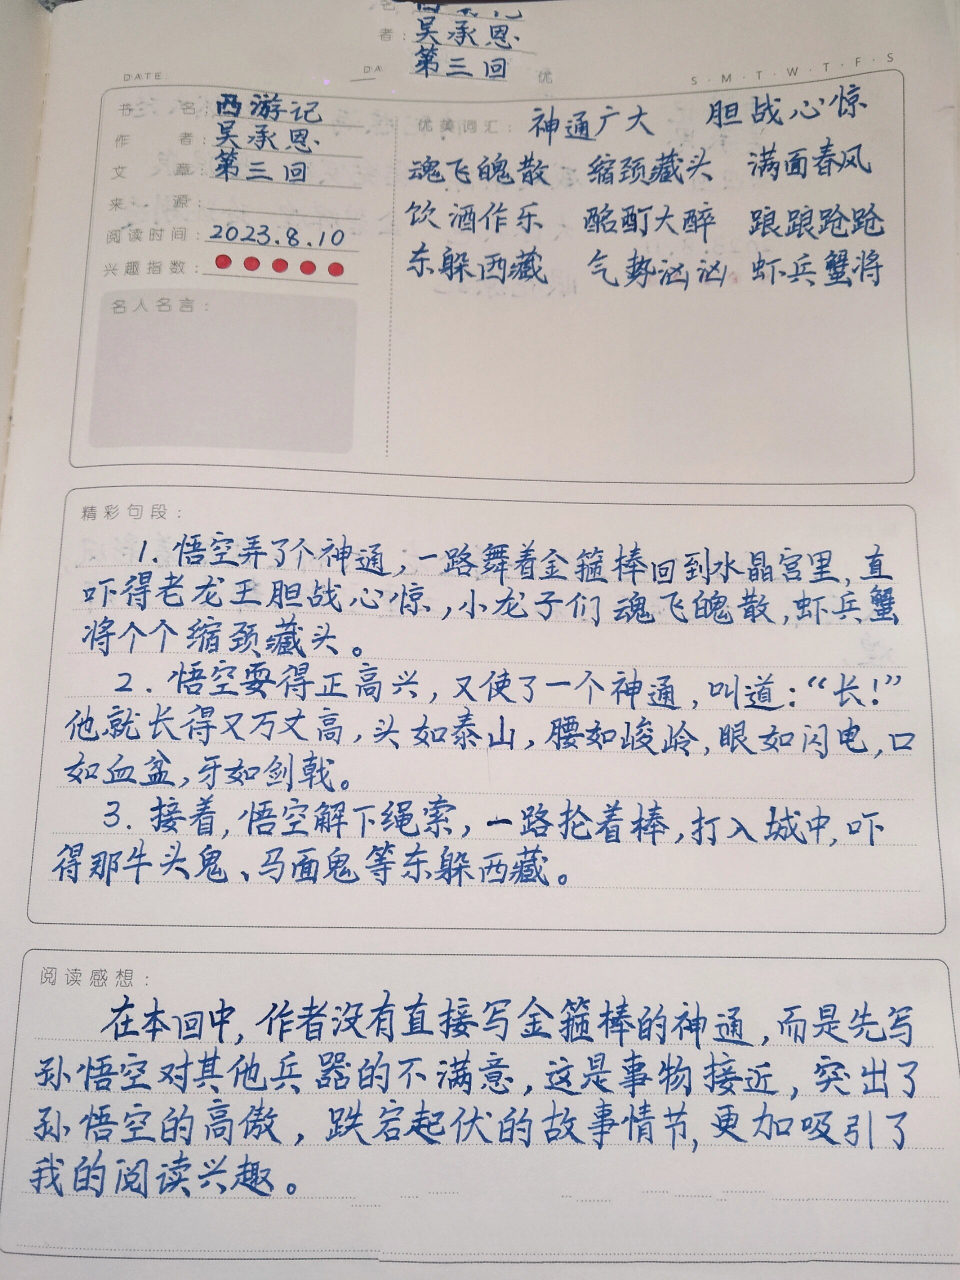 者：吴承恩
第三回
DATE
DA
优
S·M·T·W·T·F·S
书名：西游记
作者：吴承恩
文章：第三回
来源：
阅读时间：2023.8.10
兴趣指数：
名人名言：
优美词汇：神通广大 胆战心惊
魂飞魄散 缩颈藏头 满面春风
饮酒作乐 酩酊大醉 踉踉跄跄
东躲西藏 气势汹汹 虾兵蟹将
精彩句段：
1. 悟空弄了个神通，一路舞着金箍棒回到水晶宫里，直
吓得老龙王胆战心惊，小龙子们魂飞魄散，虾兵蟹
将个个缩颈藏头。
2. 悟空耍得正高兴，又使了一个神通，叫道：“长！”
他就长得又万丈高，头如泰山，腰如峻岭，眼如闪电，口
如血盆，牙如剑戟。
3. 接着，悟空解下绳索，一路抡着棒，打入城中，吓
得那牛头鬼、马面鬼等东躲西藏。
阅读感想：
在本回中，作者没有直接写金箍棒的神通，而是先写
孙悟空对其他兵器的不满意，这是事物接近，突出了
孙悟空的高傲，跌宕起伏的故事情节，更加吸引了
我的阅读兴趣。